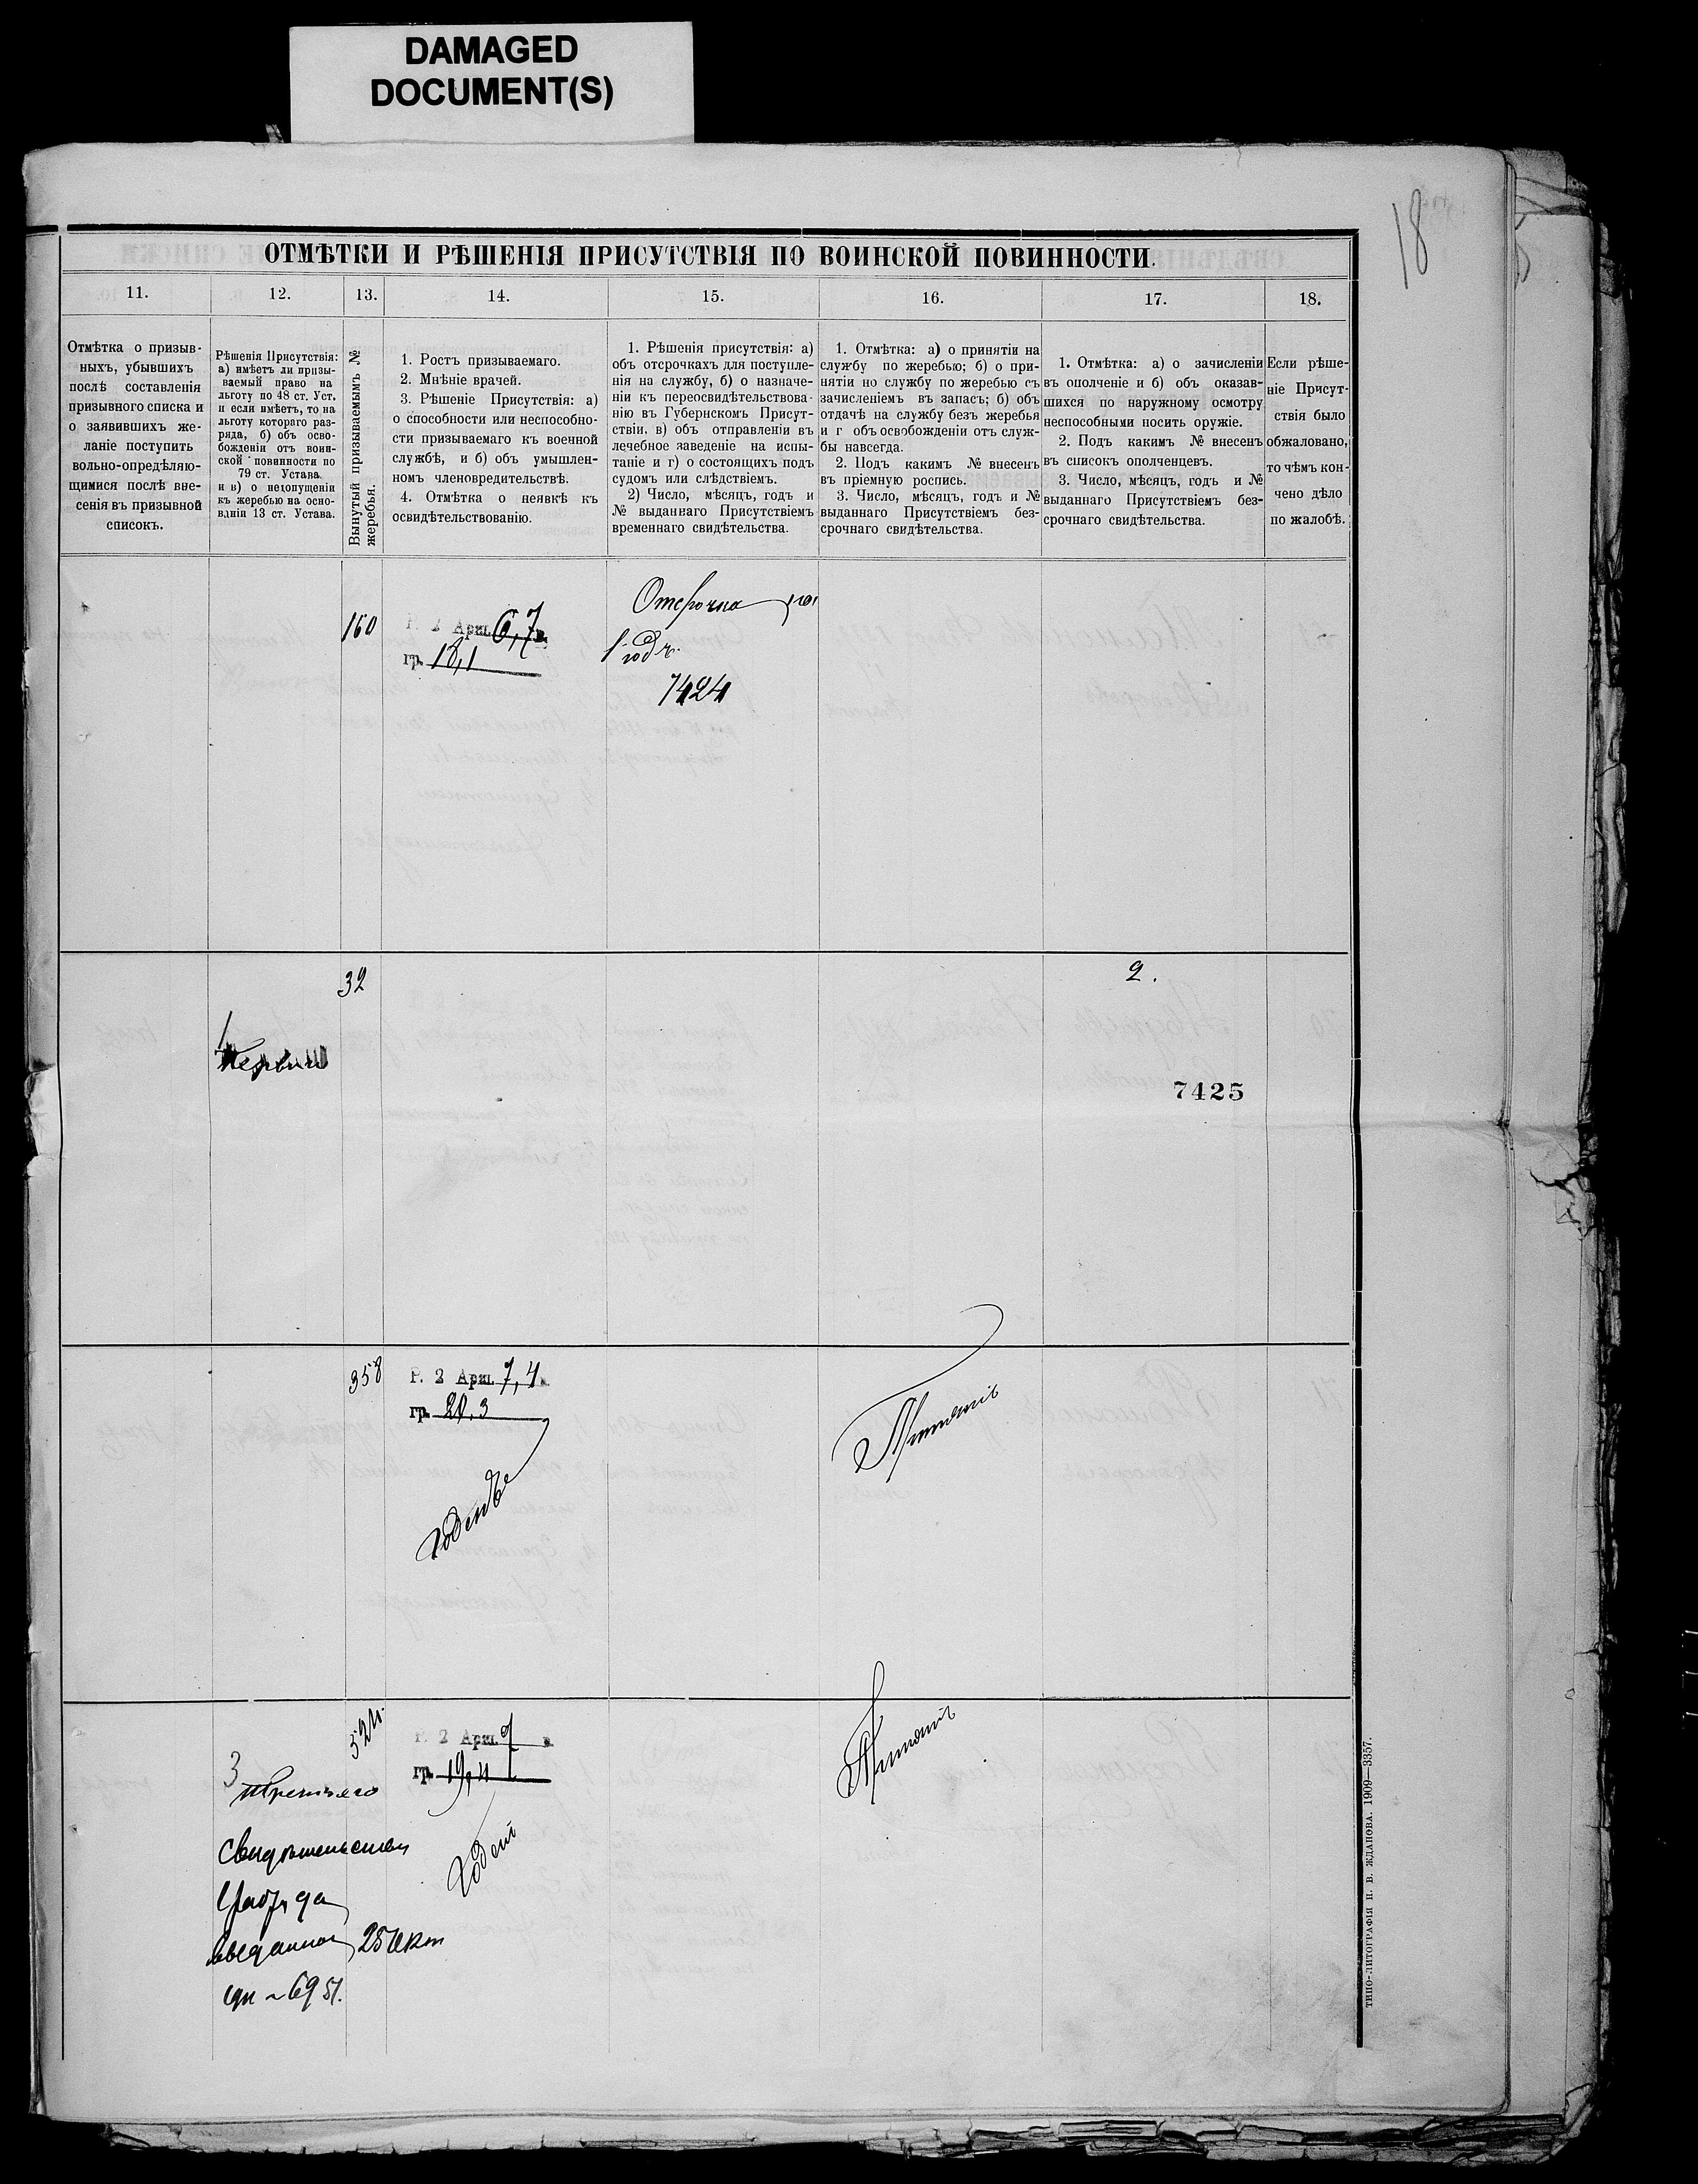 DAMAGED
DOCUMENT(S)
18
ОТМѢТКИ И РѢШЕНІЯ ПРИСУТСТВІЯ ПО ВОИНСКОЙ ПОВИННОСТИ.
11. 12. 13. 14. 15. 16. 17. 18.
Отмѣтка о призыв-
ныхъ, убывшихъ
послѣ составленія
призывного списка и
о заявившихъ же-
ланіе поступить
вольно-опредѣляю-
щимися послѣ вне-
сенія въ призывной
списокъ.
Рѣшенія Присутствія:
а) имѣетъ ли призы-
ваемый право на
льготу по 48 ст. Уст.
и если имѣетъ, то на
льготу котораго раз-
ряда, б) объ осво-
божденіи отъ воин-
ской повинности по
79 ст. Устава
и в) о недопущеніи
къ жеребью на осно-
ваніи 13 ст. Устава.
Вынутый призываемымъ №
жеребья.
1. Ростъ призываемаго.
2. Мнѣніе врачей.
3. Рѣшеніе Присутствія: а)
о способности или неспособно-
сти призываемаго къ военной
службѣ, и б) объ умышлен-
номъ членовредительствѣ.
4. Отмѣтка о неявкѣ къ
освидѣтельствованію.
1. Рѣшенія присутствія: а)
объ отсрочкахъ для поступле-
нія на службу, б) о назначе-
ніи къ переосвидѣтельствова-
нію въ Губернскомъ Присут-
ствіи. в) объ отправленіи въ
лечебное заведеніе на испы-
таніе и г) о состоящихъ подъ
судомъ или слѣдствіемъ.
2) Число, мѣсяцъ, годъ и
№ выданнаго Присутствіемъ
временнаго свидѣтельства.
1. Отмѣтка: а) о принятіи на
службу по жеребью; б) о при-
нятіи но службу по жеребью съ
зачисленіемъ въ запасъ; б) объ
отдачѣ на службу безъ жеребья
и г объ освобожденіи отъ служ-
бы навсегда.
2. Подъ какимъ № внесенъ
въ пріемную роспись.
3. Число, мѣсяцъ, годъ и №
выданнаго Присутствіемъ без-
срочнаго свидѣтельства.
1. Отмѣтка: а) о зачисленіи
въ ополченіе и б) объ оказав-
шихся по наружному осмотру
неспособными носить оружіе.
2. Подъ какимъ № внесенъ
въ списокъ ополченцевъ.
3. Число, мѣсяцъ, годъ и №
выданнаго Присутствіемъ без-
срочнаго свидѣтельства.
Если рѣше-
ніе Присут-
ствія было
обжаловано,
то чѣмъ кон-
чено дѣло
по жалобѣ.
160
Р. 2 Арш. 6,7 в.
гр. 18,1
Отсрочка на
1 годъ.
7424
32
2.
1
7425
358
Р. 2 Арш. 7,4 в.
гр. 20,3
Годенъ
Принятъ
Р. 2 Арш.
гр. 19,4
Годенъ
Принятъ
3
третьяго
свидѣтельство
разряда
выданно 25 Окт
6951.
ТИПО-ЛИТОГРАФІЯ П. В. ЖДАНОВА. 1909—3357.